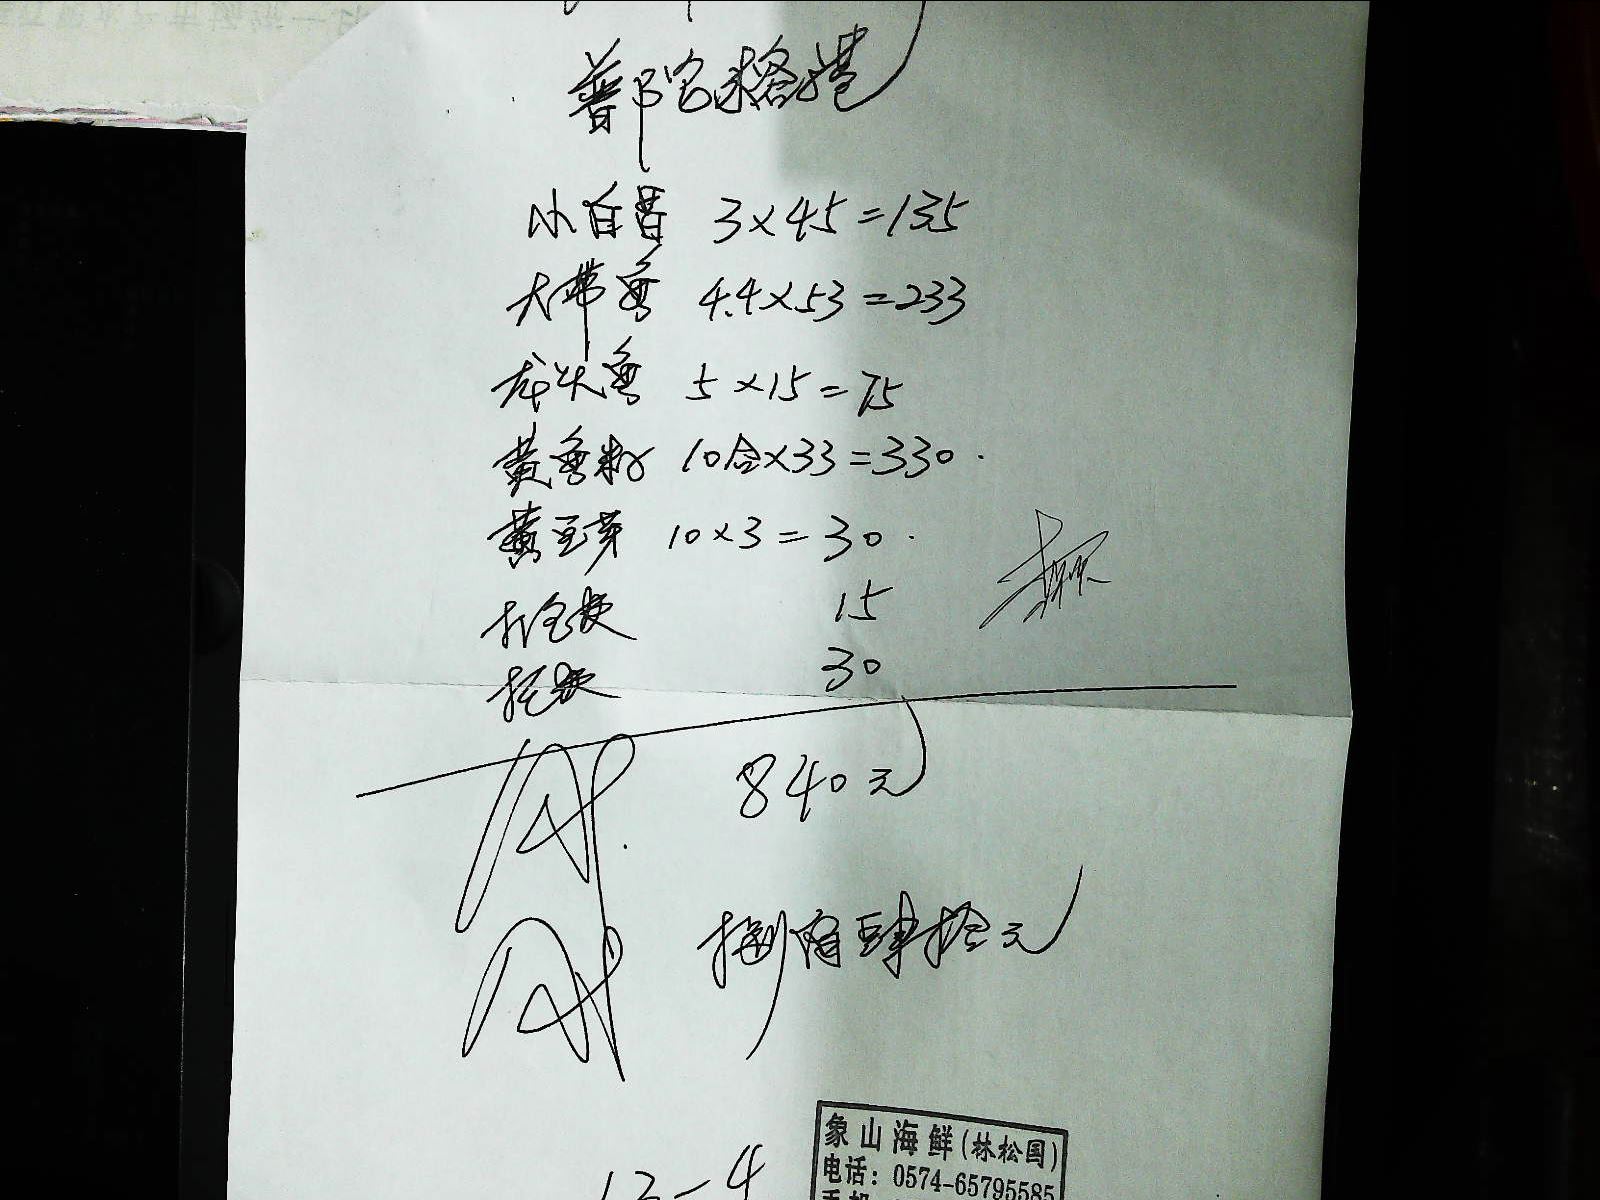 普陀米格港
小白鲳 3×45=135
大带鱼 4.4×53=233
龙头鱼 5×15=75
黄鱼籽 10合×33=330
黄豆芽 10×3=30
打包费 15
托费 30
840元
捌佰肆拾元
12-4
象山海鲜(林松国)
电话: 0574-65795585